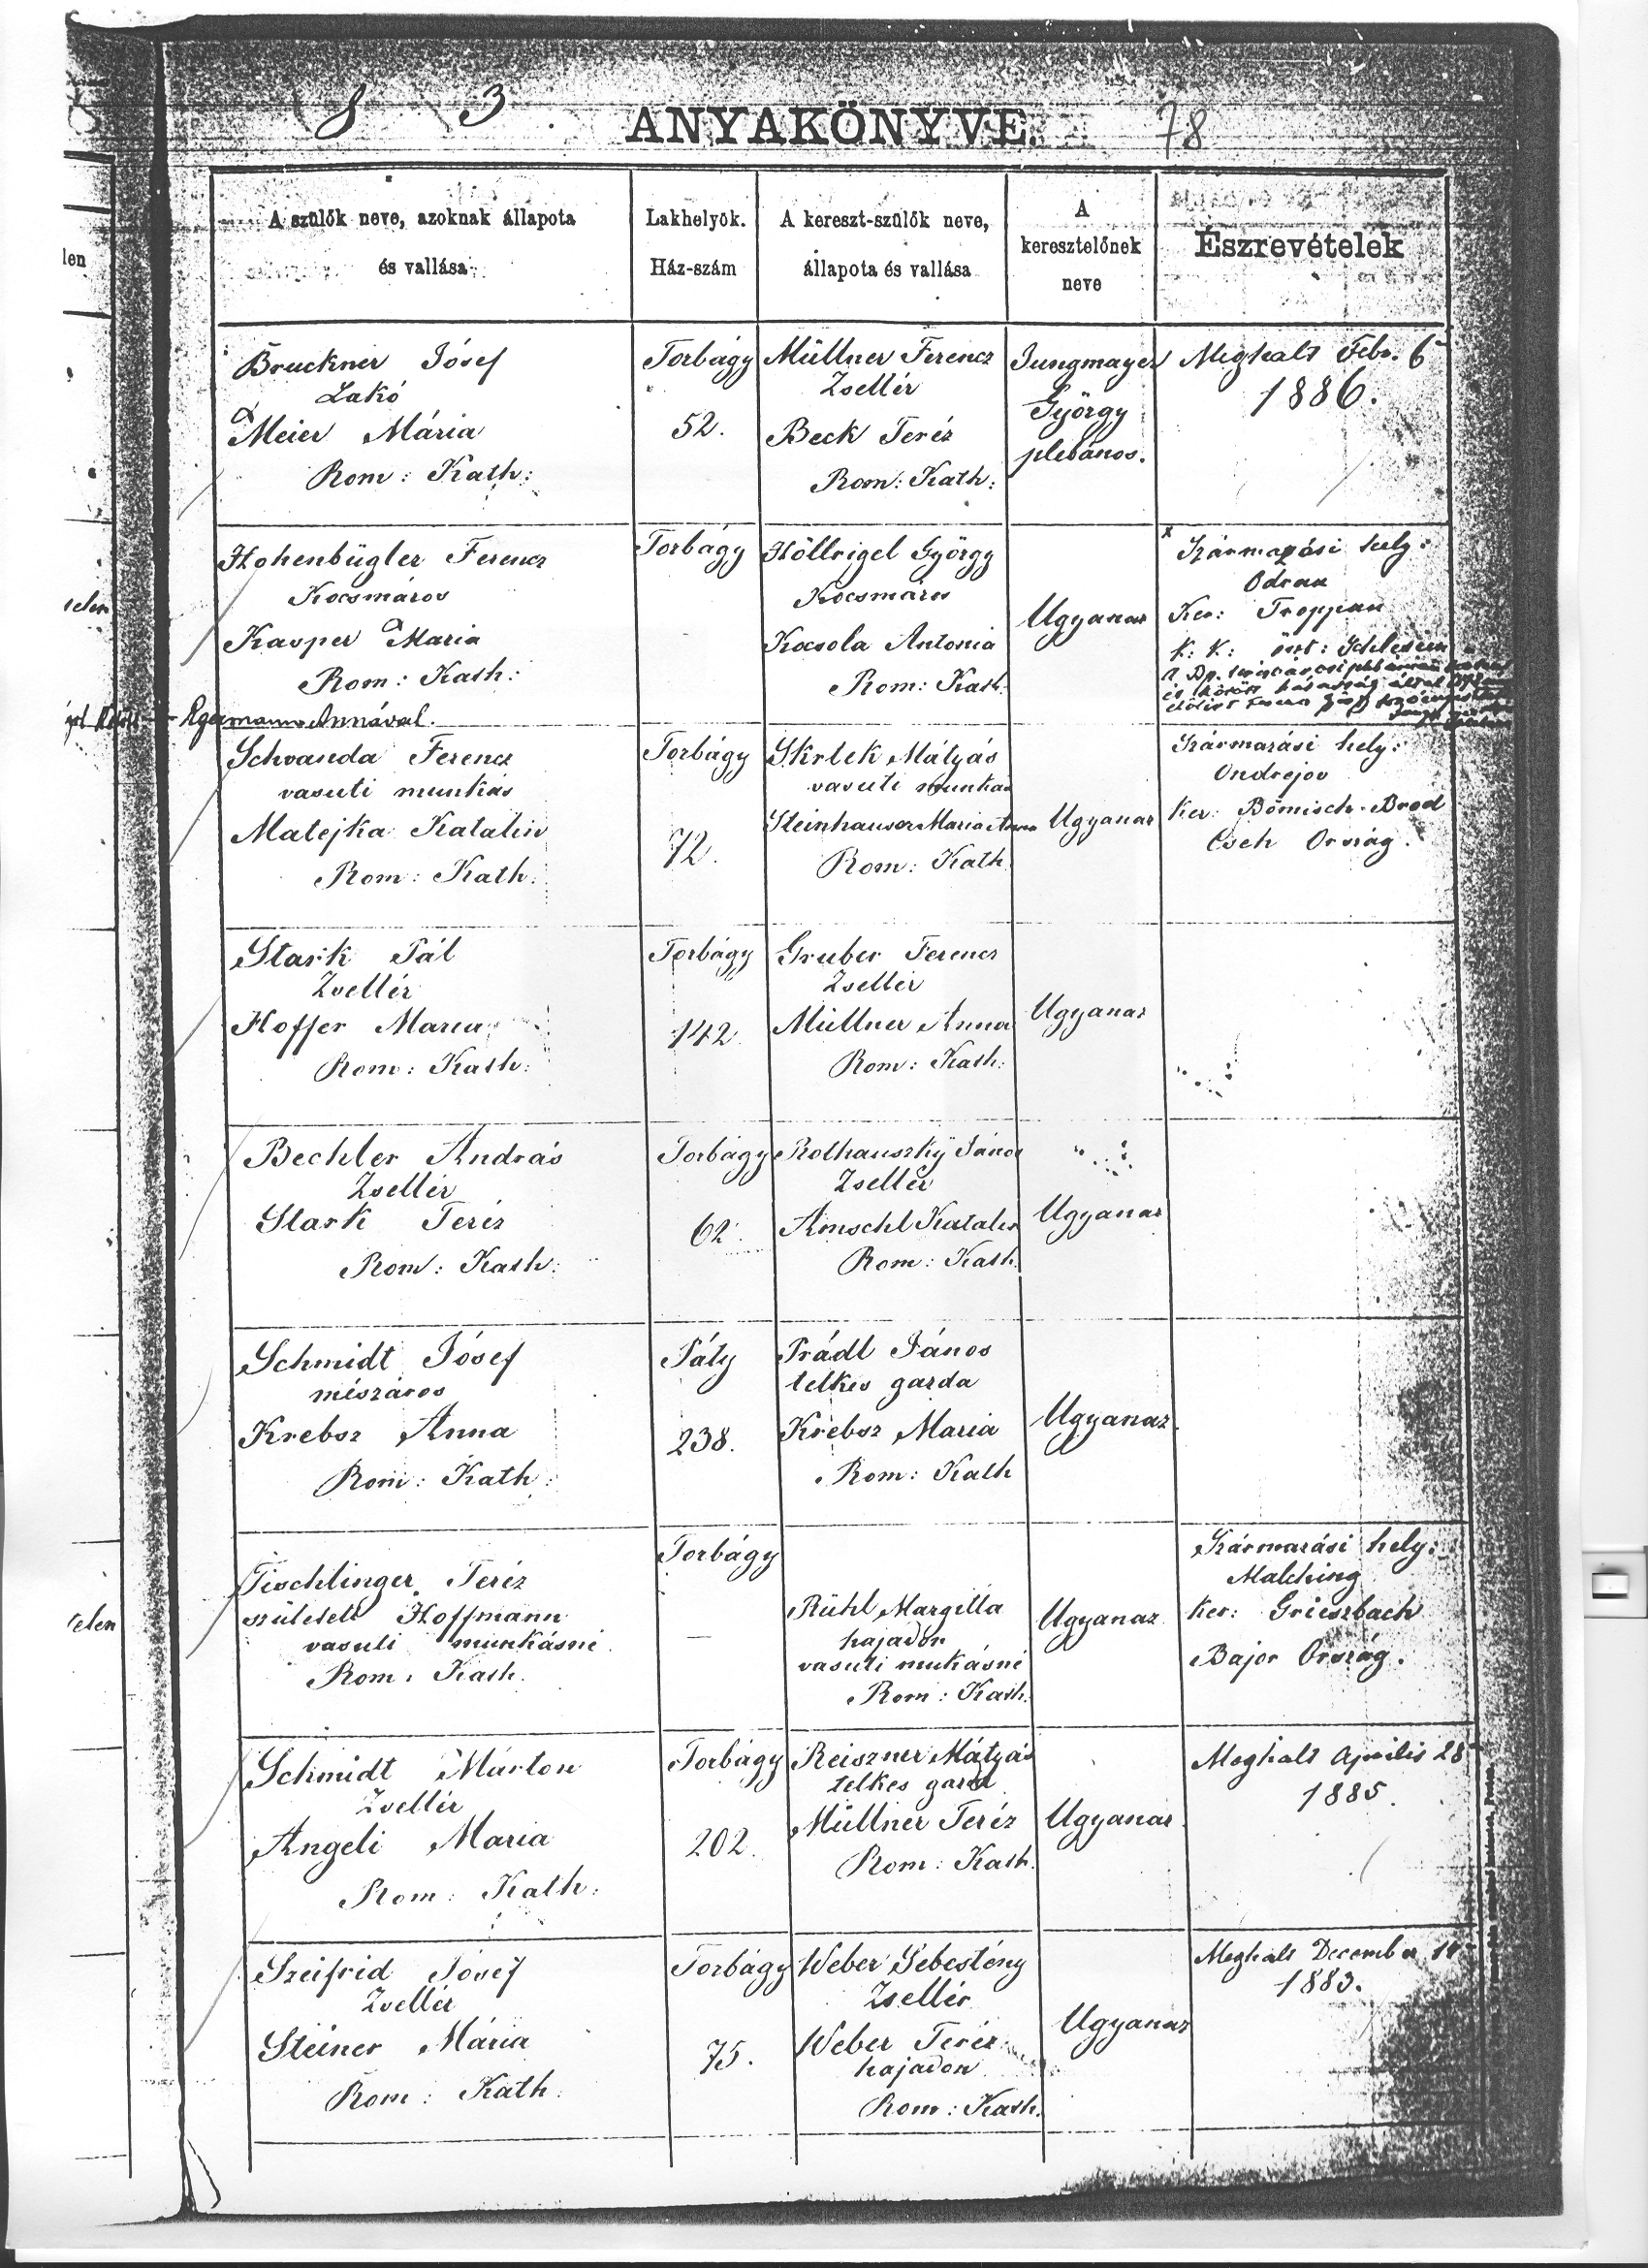 8 3
ANYAKÖNYVE.
78
A szülők neve, azoknak állapota
és vallása
Lakhelyök.
Ház-szám
A kereszt-szülők neve,
állapota és vallása
A
keresztelőnek
neve
Észrevételek
len
Bruckner Jósef
Lakó
Meier Mária
Rom: Kath:
Torbágy
52.
Müllner Ferencz
Zsellér
Beck Teréz
Rom: Kath:
Jungmayer
György
plebános.
Meghalt Febr. 6
1886.
Hohenbügler Ferencz
Kocsmáros
Kasper Maria
Rom: Kath:
Torbágy
Höllrigel György
Kocsmáros
Kocsola Antonia
Rom: Kath.
Ugyanaz
x Származási hely:
Odrau
Ker: Troppau
K: K: öst: Schlesien
telen
Annával.
Schvanda Ferencz
vasuti munkás
Matejka Katalin
Rom: Kath:
Torbágy
72.
Skrlek Mátyás
vasuti munkás
Steinhauser Maria Anna
Rom: Kath.
Ugyanaz
Származási hely:
Ondrejov
Ker: Bömisch-Brod
Cseh Ország.
Stark Pál
Zsellér
Hoffer Maria
Rom: Kath:
Torbágy
142.
Gruber Ferencz
Zsellér
Müllner Anna
Rom: Kath:
Ugyanaz
Bechler András
Zsellér
Stark Teréz
Rom: Kath:
Torbágy
62.
Rothauszky János
Zsellér
Amschl Katalin
Rom: Kath.
Ugyanaz
Schmidt Jósef
mészáros
Krebsz Anna
Rom: Kath:
Páty
238.
Prádl János
telkes gazda
Krebsz Maria
Rom: Kath
Ugyanaz.
Tischlinger Teréz
született Hoffmann
vasuti munkásné
Rom: Kath.
Torbágy
—
Rühl Margitta
hajadon
vasuti mukásné
Rom: Kath.
Ugyanaz
Származási hely:
Malching
Ker: Grieszbach
Bajor Ország.
telen
Schmidt Márton
Zsellér
Angeli Maria
Rom: Kath:
Torbágy
202.
Reiszner Mátyás
telkes gazda
Müllner Teréz
Rom: Kath.
Ugyanaz.
Meghalt Április 28
1885.
Szeifrid Jósef
Zsellér
Steiner Mária
Rom: Kath:
Torbágy
75.
Weber Sebestény
Zsellér
Weber Teréz
hajadon
Rom: Kath.
Ugyanaz
Meghalt December
1883.